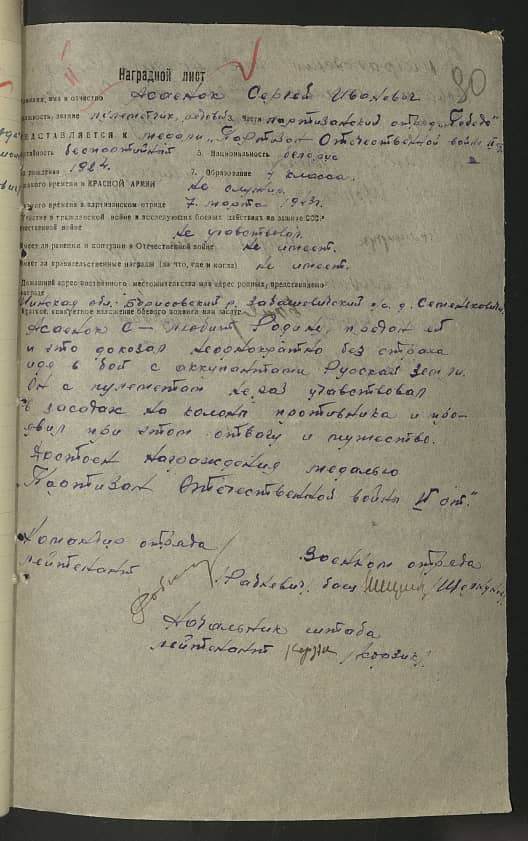 80
Наградной лист
Фамилия, имя и отчество Асаенок Сергей Иванович
должность, звание пулеметчик, рядовой Часть партизанский отряд „Победа"
ПРЕДСТАВЛЯЕТСЯ К медали „Партизан Отечественной войны II ст."
беспартийный 5. Национальность белорус
рождения 1924 7. Образование 4 класса.
какого времени в КРАСНОЙ АРМИИ не служил
какого времени в партизанском отряде 7 марта 1943г.
Участие в гражданской войне и последующих боевых действиях по защите СССР
отечественной войне не участвовал.
Имеет ли ранения и контузии в Отечественной войне не имеет.
Имеет ли правительственные награды (за что, где и когда) не имеет.
Домашний адрес представляемого к
награде
Минская обл. Борисовский р. с/с. д.
Краткое, конкретное изложение боевого подвига или заслуг
Асаенок С — любит Родину, предан ей
и это доказал неоднократно без страха
идя в бой с аккупантами Русской земли.
Он с пулеметом не раз учавствовал
в засадах на колоны противника и про-
явил при этом отвагу и мужество.
Достоен награждения медалью
„Партизан Отечественной войны II ст."
Командир отряда
лейтенант /Радкевич/
Военком отряда
Начальник штаба
лейтенант /Корзик/